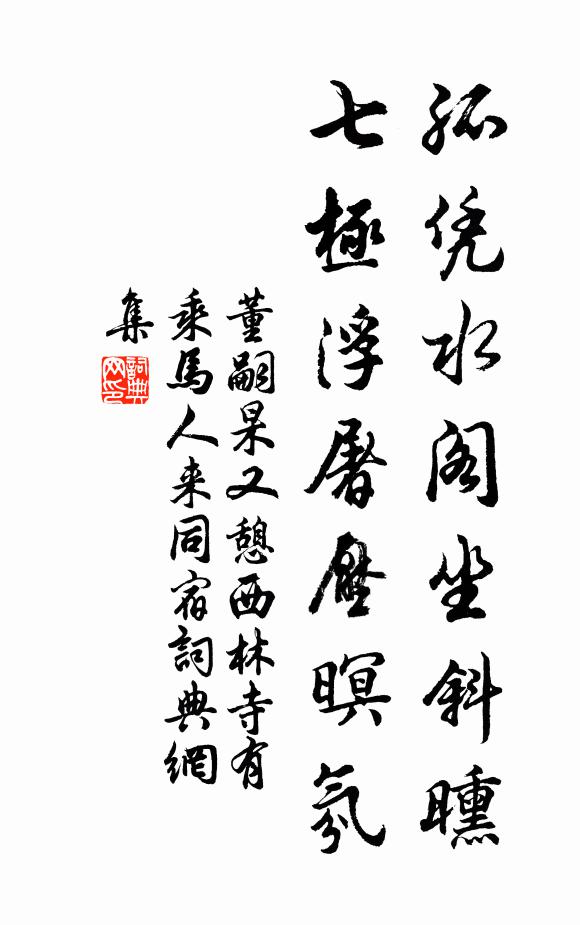 孤凭水阁坐斜曛
七極浮屠壓暝氛
董嗣杲又憩西林寺有
乘馬人来同宿詞典網
集
詞典网印